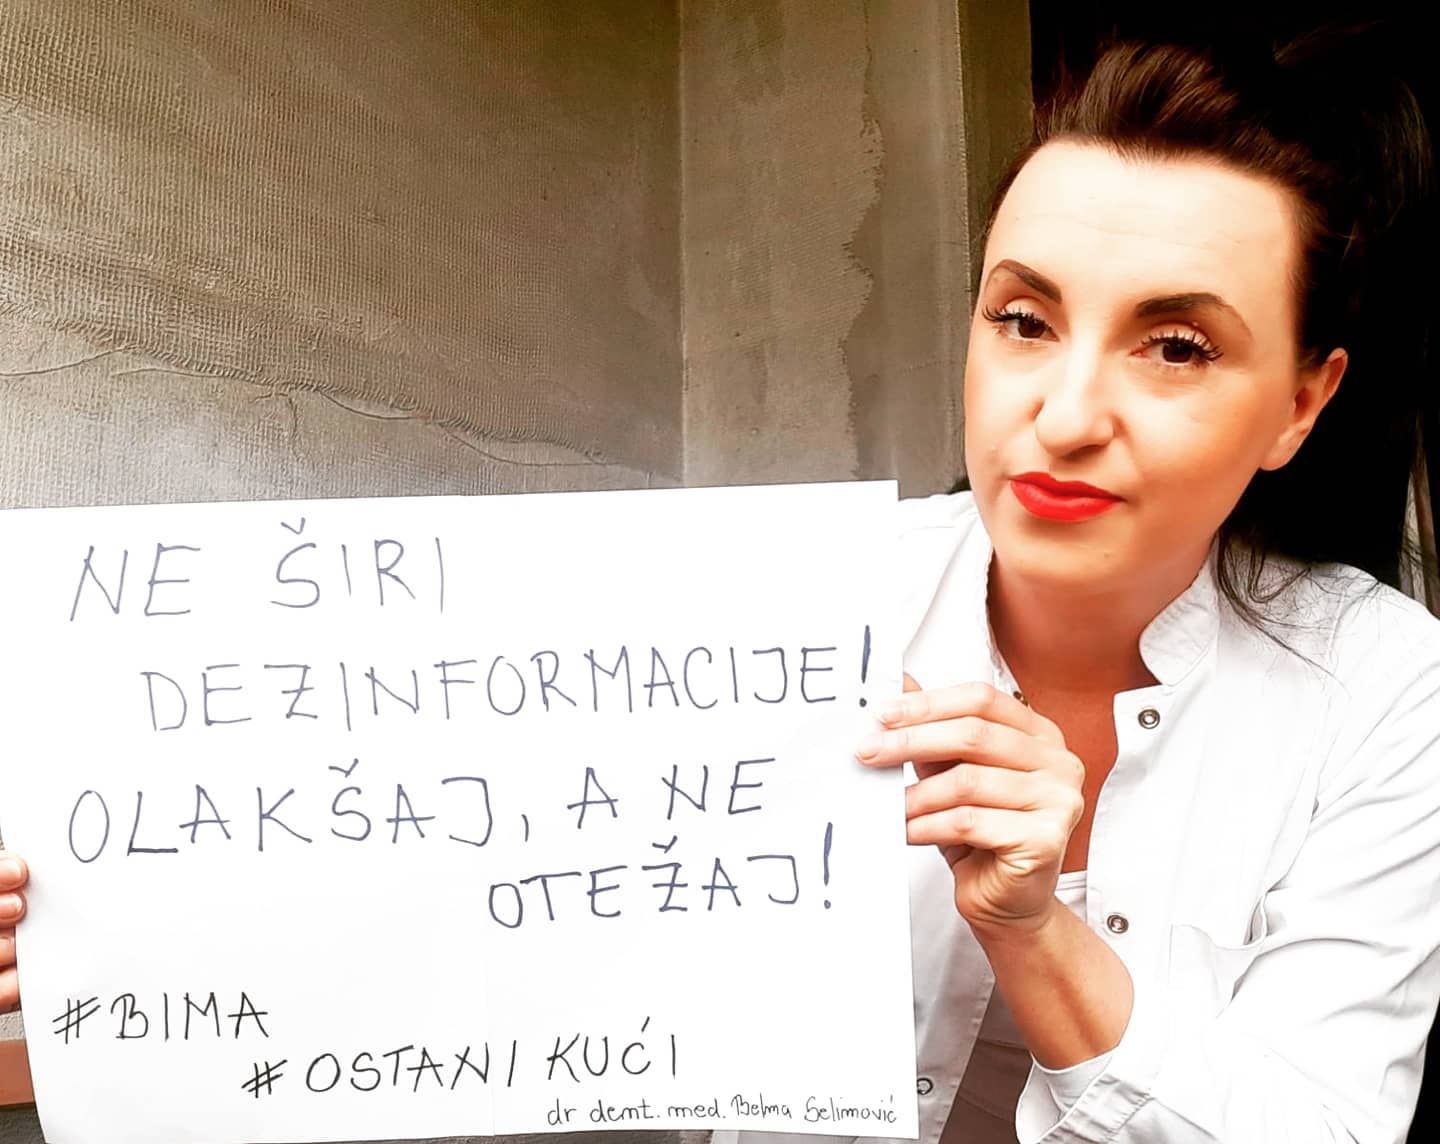 NE ŠIRI
DEZINFORMACIJE!
OLAKŠAJ, A NE
OTEŽAJ!
#BIMA
#OSTANI KUĆI
dr dent. med. Belma Selimović